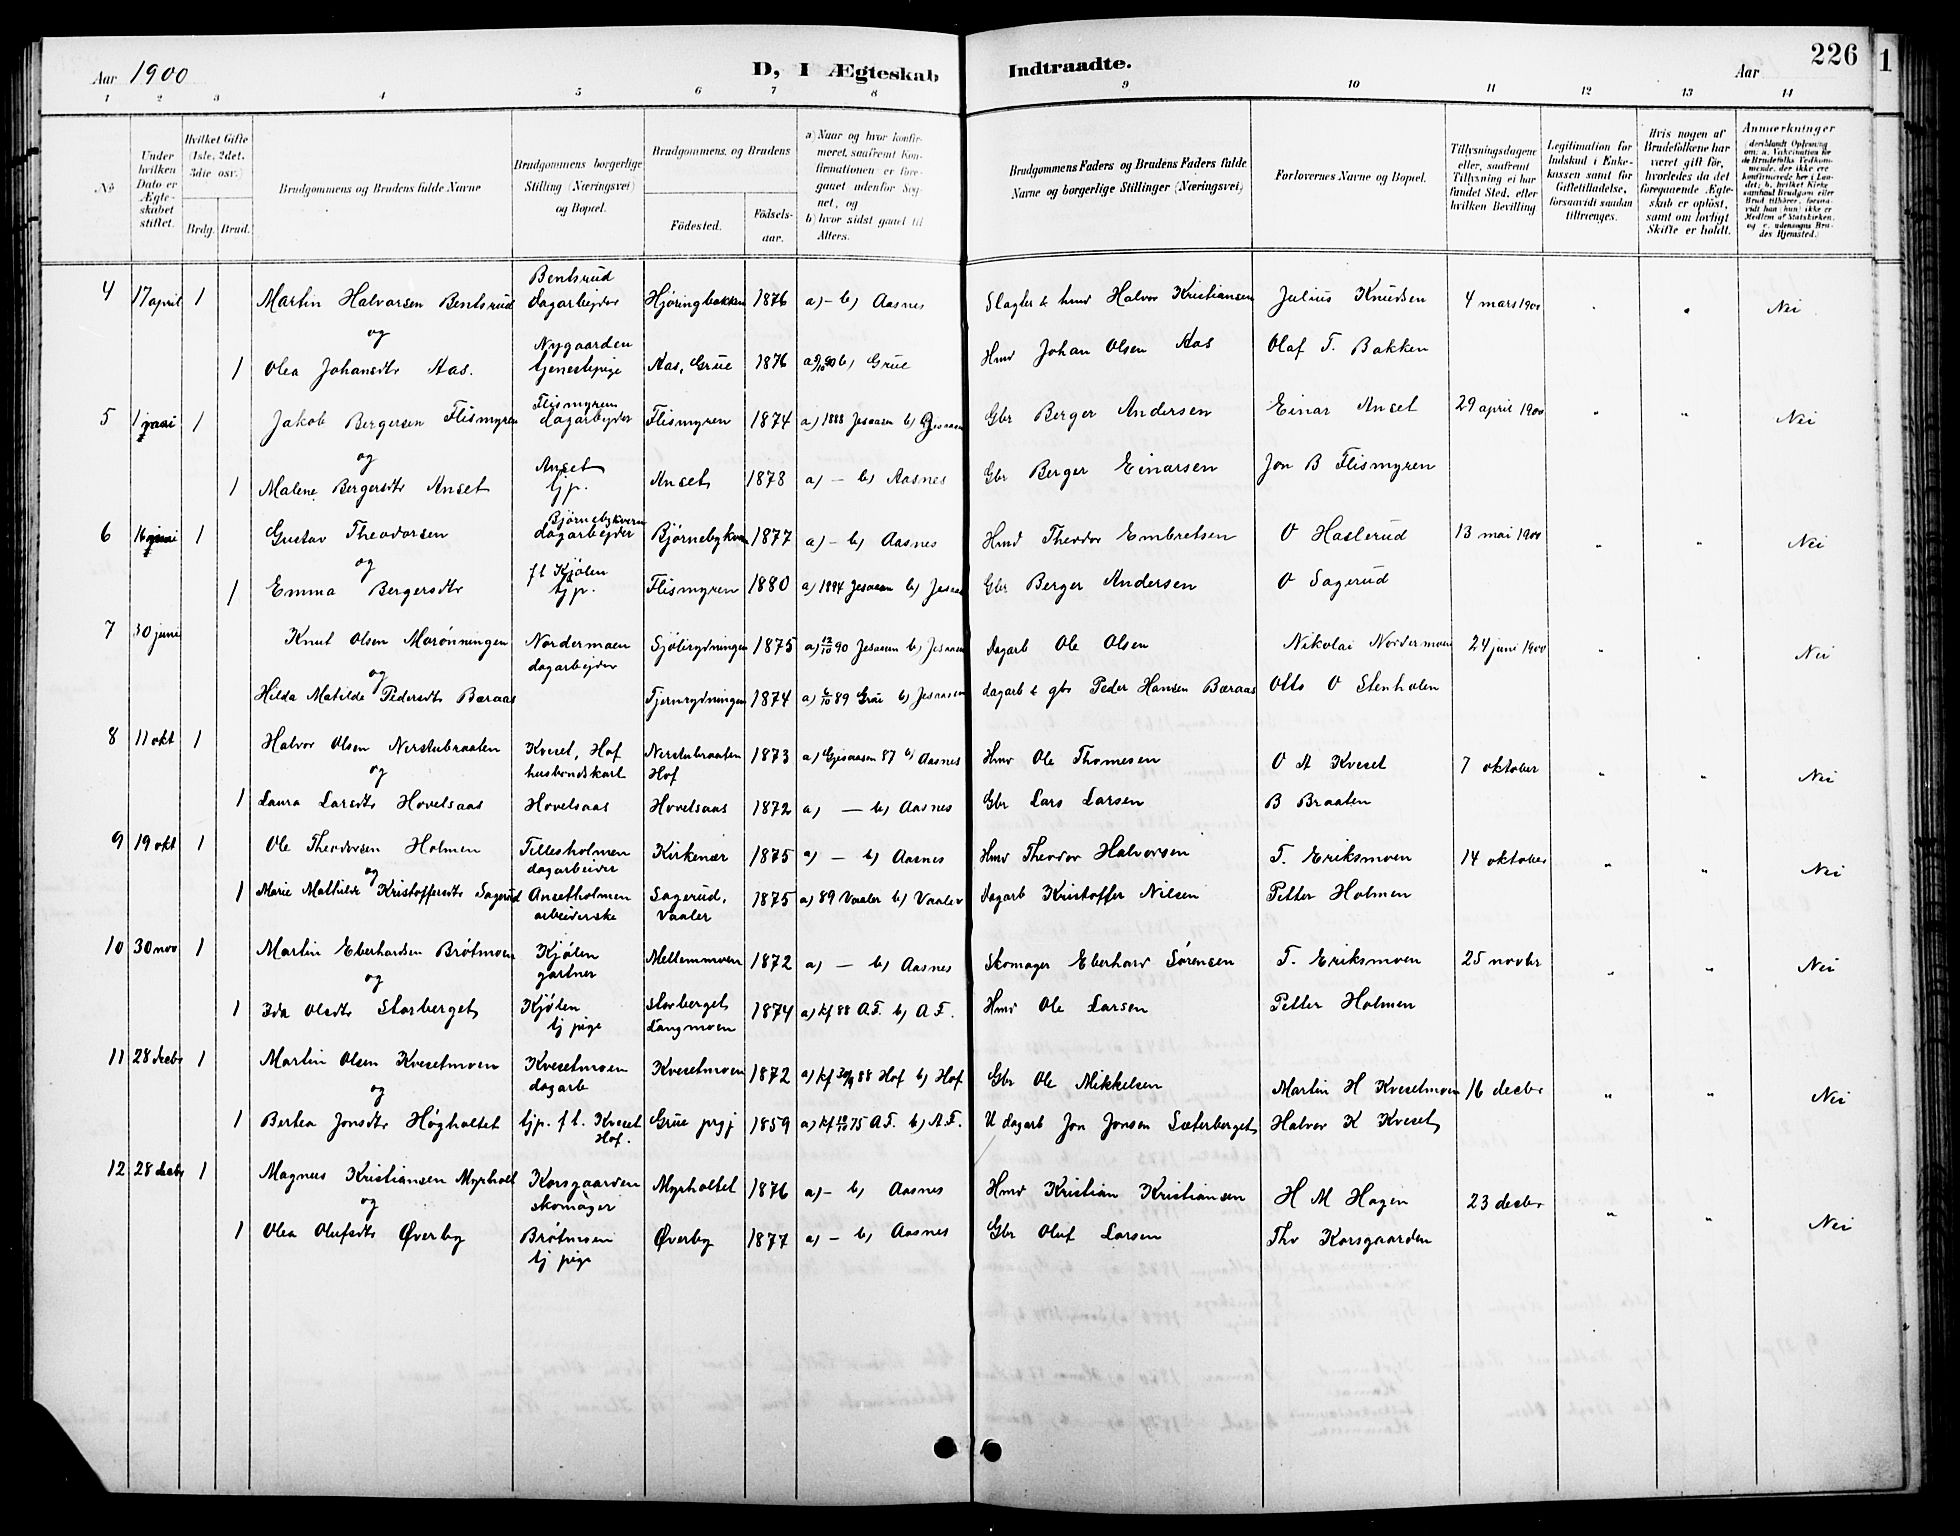 Aar 1900
D, I Ægteskab Indtraadte.
Aar
226
1
1 2 3 4 5 6 7 8 9 10 11 12 13 14
№
Under hvilken Dato er Ægteskabet stiftet.
Hvilket Gifte (1ste, 2det, 3die osv.)
Brdg. Brud.
Brudgommens og Brudens fulde Navne
Brudgommens borgerlige Stilling (Næringsvei) og Bopæl.
Brudgommens og Brudens
Fødested. Fødselsaar.
a) Naar og hvor konfirmeret, saafremt Konfirmationen er foregaaet udenfor Sognet, og b) hvor sidst gaaet til Alters.
Brudgommens Faders og Brudens Faders fulde Navne og borgerlige Stillinger (Næringsvei)
Forlovernes Navne og Bopæl.
Tillysningsdagene eller, saafremt Tillysning ei har fundet Sted, efter hvilken Bevilling
Legitimation for Indskud i Enkekassen samt for Giftetilladelse, forsaavidt saadan tiltrænges.
Hvis nogen af Brudefolkene har været gift før, hvorledes da det foregaaende Ægteskab er opløst, samt om lovligt Skifte er holdt.
Anmærkninger (deriblandt Oplysning om: a. Vakcination for de Brudefolks Vedkommende, der ikke ere konfirmerede her i Landet; b. hvilket Kirkesamfund Brudgom eller Brud tilhører, forsaavidt han (hun) ikke er Medlem af Statskirken, og c. udensogns Brudes Hjemsted.)
4 17 april 1 Martin Halvorsen Bentsrud Bentsrud dagarbejder Hjøringbakken 1876 a) - b) Aasnes Slagter & hmd Halvor Kristiansen Julius Knudsen 4 mars 1900 Nei
og
1 Olea Johansdtr Aas. Nygaarden tjenestepige Aas, Grue 1876 a 9/10 90 b) Grue Hmd Johan Olsen Aas Olaf T. Bakken
5 1 mai 1 Jakob Bergersen Flismyren Flismyren dagarbejder Flismyren 1874 a) 1888 Jesaasen b) Gjesaasen Gbr Berger Andersen Einar Anset 29 april 1900 " " Nei
og
1 Malene Bergersdtr Anset Anset tjp. Anset 1878 a) - b) Aasnes Gbr Berger Einarsen Jon B Flismyren
6 16 mai 1 Gustav Theodorsen Bjørnebykvern dagarbejder Bjørnebykvern 1877 a) - b) Aasnes Hmd Theodor Embretsen O Haslerud 13 mai 1900 " " Nei
og
1 Emma Bergersdtr ft Kjølen tjp. Flismyren 1880 a) 1894 Jesaasen b) Jesaasen Gbr Berger Andersen O Sagerud
7 30 juni Knut Olsen Morønningen Nordermoen dagarbejder Sjølirydningen 1875 a) 12/10 90 Jesaasen b) Jesaasen Dagarb Ole Olsen Nikolai Nordermoen 24 juni 1900 " . Nei
og
Hilda Matilde Pedersdtr Bæraas Tjernrydningen 1874 a) 6/10 89 Grue b) Jesaasen dagarb & gbr Peder Hansen Bæraas Otto O Stenholen
8 11 okt 1 Halvor Olsen Nerstubraaten Kveset, Hof husbondskarl Nerstubraaten Hof 1873 a) Gjesaasen 87 b) Aasnes Hmd Ole Thomesen O A Kveset 7 oktober " " Nei
og
1 Laura Larsdtr Hovelsaas Hovelsaas Hovelsaas 1872 a) - b) Aasnes Gbr Lars Larsen B Braaten
9 19 okt 1 Ole Theodorsen Holmen Tillesholmen dagarbeider Kirkenær 1875 a) - b) Aasnes Hmd Theodor Halvorsen T. Eriksmoen 14 oktober " " Nei
og
1 Marie Mathilde Kristoffersdtr Sagerud Ansetholmen arbeiderske Sagerud, Vaaler 1875 a) 89 Vaaler b) Vaaler Dagarb Kristoffer Nilsen Petter Holmen
10 30 nov 1 Martin Eberhardsen Brøtmoen Kjølen gartner Mellemmoen 1872 a) - b) Aasnes Skomager Eberhard Sørensen T. Eriksmoen 25 novbr " " Nei
og
1 Ida Olsdtr Storberget Kjølen tj pige Storberget Langmoen 1874 a) kf 88 A.F. b) A F. Hmd Ole Larsen Petter Holmen
11 28 decbr 1 Martin Olsen Kvesetmoen Kvesetmoen dagarb Kvesetmoen 1872 a) kf 30/9 88 Hof b) Hof Gbr Ole Mikkelsen Martin H Kvesetmoen 16 decbr " " Nei
og
1 Bertea Jonsdtr Høgholtet tjp. ft. Kveset Hof. Grue prgj 1859 a) kf 10/10 75 A.F. b) A.F. U dagarb Jon Jonsen Sæterberget Halvor K Kveset
12 28 decbr 1 Magnus Kristiansen Myrholt Korsgaarden skomager Myrholtet 1876 a) - b) Aasnes Hmd Kristian Kristiansen H M Hagen 23 decbr " " Nei
og
1 Olea Olufsdtr Øverby Brøtmoen tj pige Øverby 1877 a) - b) Aasnes Gbr Oluf Larsen Thv Korsgaarden